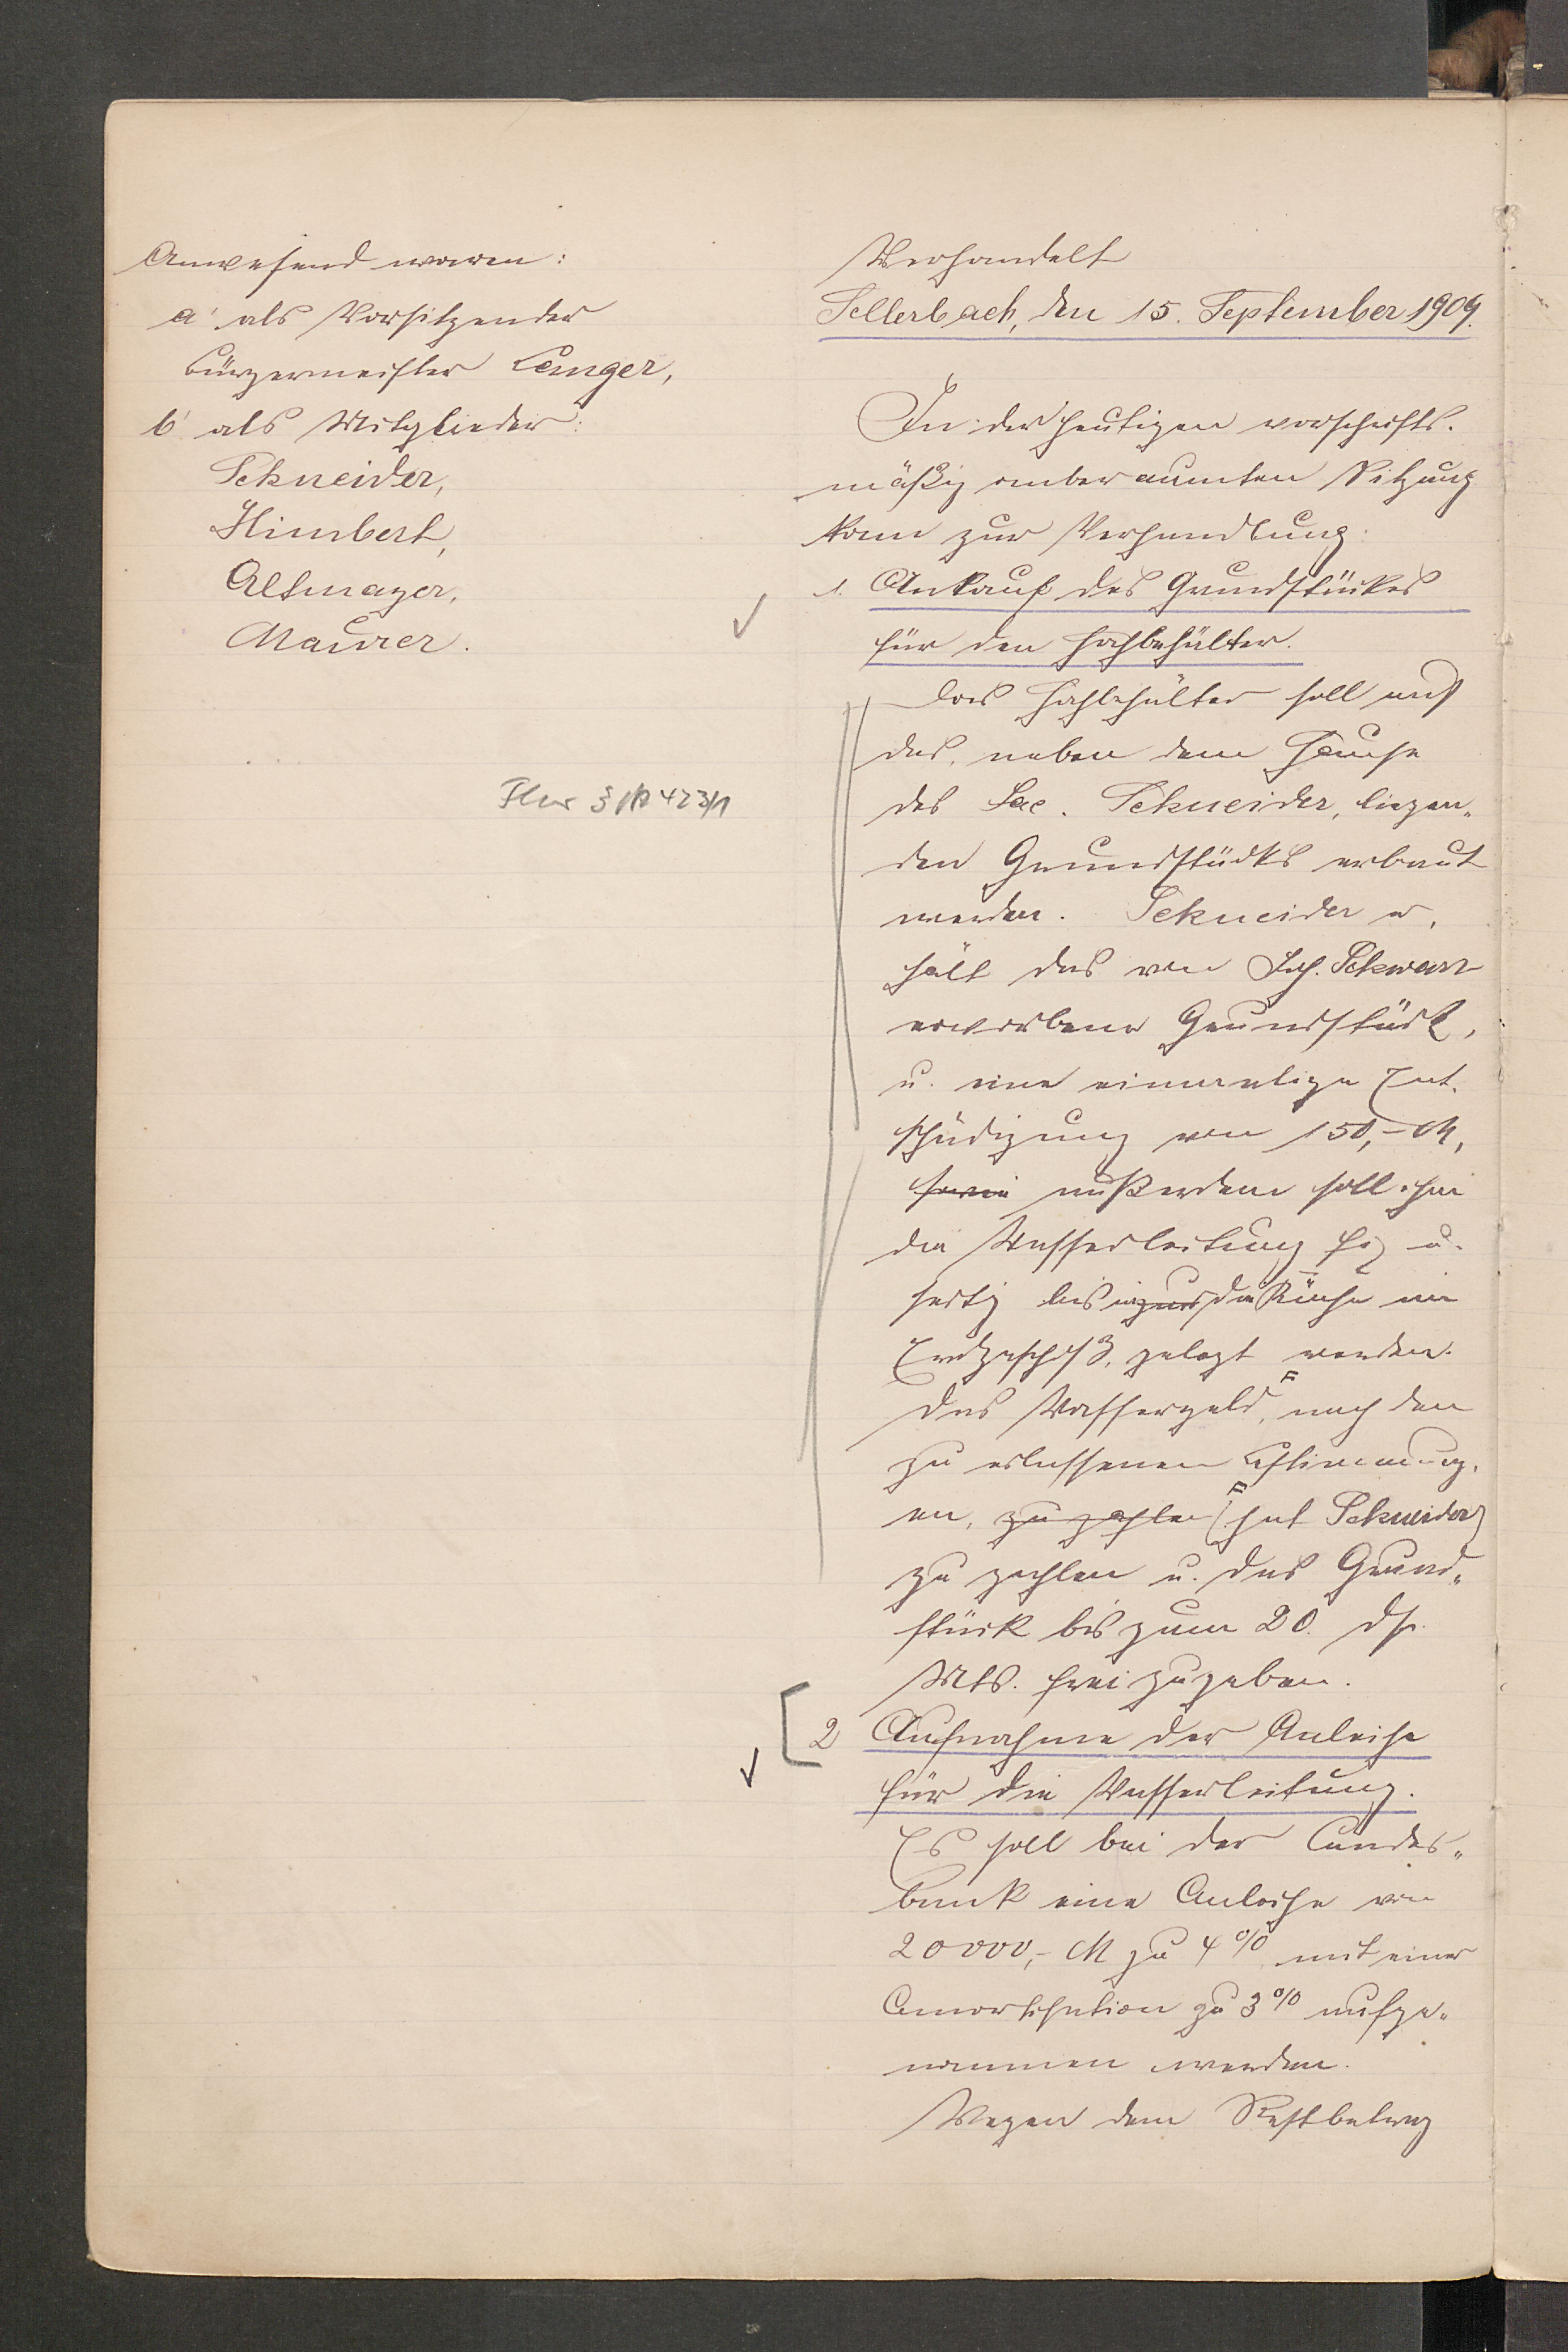 Anwesend waren:
a' als Vorsitzender
Bürgermeister Lenger,
b' als Mitglieder:
Schneider,
Himbert,
Altmayer,
Maurer.
Flur 3 423/1
Verhandelt
Sellerbach, den 15. September 1909.
In der heutigen vorschrifts-
mäßig anberaumten Sitzung
kam zur Verhandlung:
1. Ankauf des Grundstückes
für den Hochbehälter.
Der Hochbehälter soll auf
das, neben dem Hause
des Jac. Schneider, liegen-
den Grundstücks erbaut
werden. Schneider er-
hält das von Joh. Schwarz
erworbene Grundstück,
u. eine einmalige Ent-
schädigung von 150,- M,
sowie außerdem soll ihm
die Wasserleitung fix u.
fertig bis in zur die Küche im
Erdgeschoß, gelegt werden.
Das Wassergeld, F nach den
zu erlassenen Bestimmung-
en, zu zahlen F (hat Schneider)
zu zahlen u. das Grund-
stück bis zum 20. ds.
Mts. frei zu geben.
2 Aufnahme der Anleihe
für die Wasserleitung.
Es soll bei der Landes-
bank eine Anleihe von
20000,- M zu 4% mit einer
Amortisation zu 3% aufge-
nommen werden.
Wegen dem Restbetrag